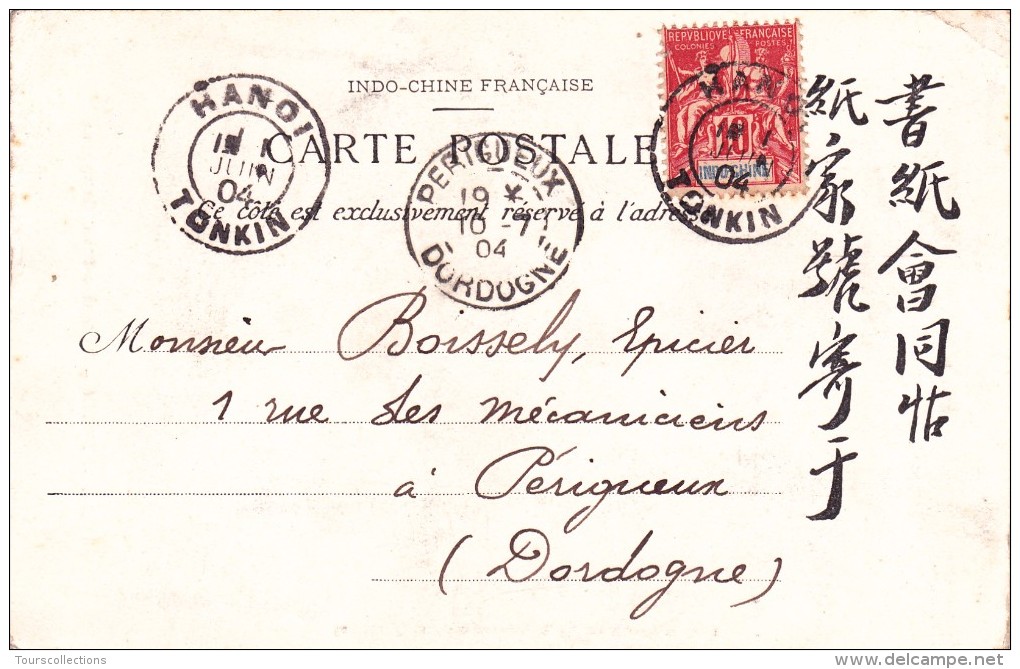 REPVBLIQVE FRANÇAISE
COLONIES POSTES
10
INDOCHINE
INDO-CHINE FRANÇAISE
CARTE POSTALE
Ce côté est exclusivement réservé à l'adresse
HANOI
1
JUIN
04
TONKIN
PERIGUEUX
19 *
10 -7
04
DORDOGNE
HANOI
1
JUIN
04
TONKIN
Monsieur Boissely, Epicier
1 rue des Mécaniciens
à Périgueux
(Dordogne)
書紙會同帖
紙家號寄于
Tourscollections
delcampe.net